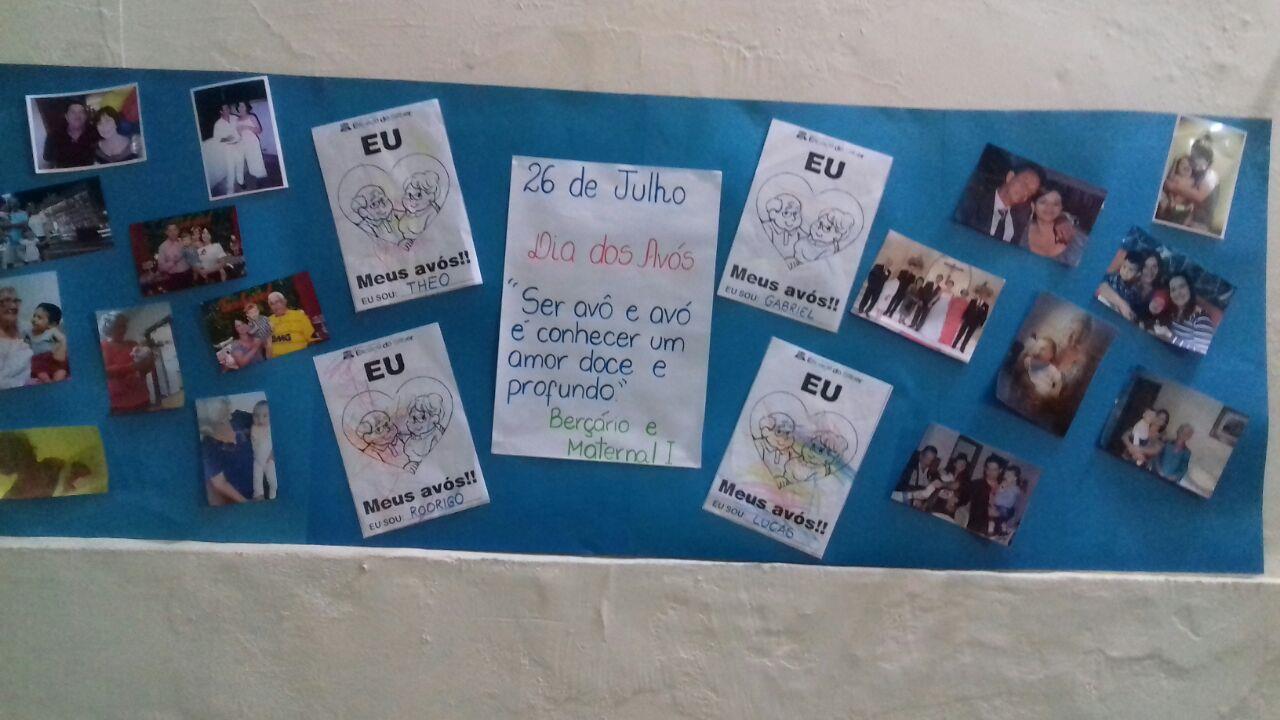 EU
Meus avós!!
EU SOU: THEO
EU
Meus avós!!
EU SOU: RODRIGO
26 de Julho
Dia dos Avós
"Ser avô e avó
é conhecer um
amor doce e
profundo."
Berçário e
Maternal I
EU
Meus avós!!
EU SOU: GABRIEL
EU
Meus avós!!
EU SOU: LUCAS